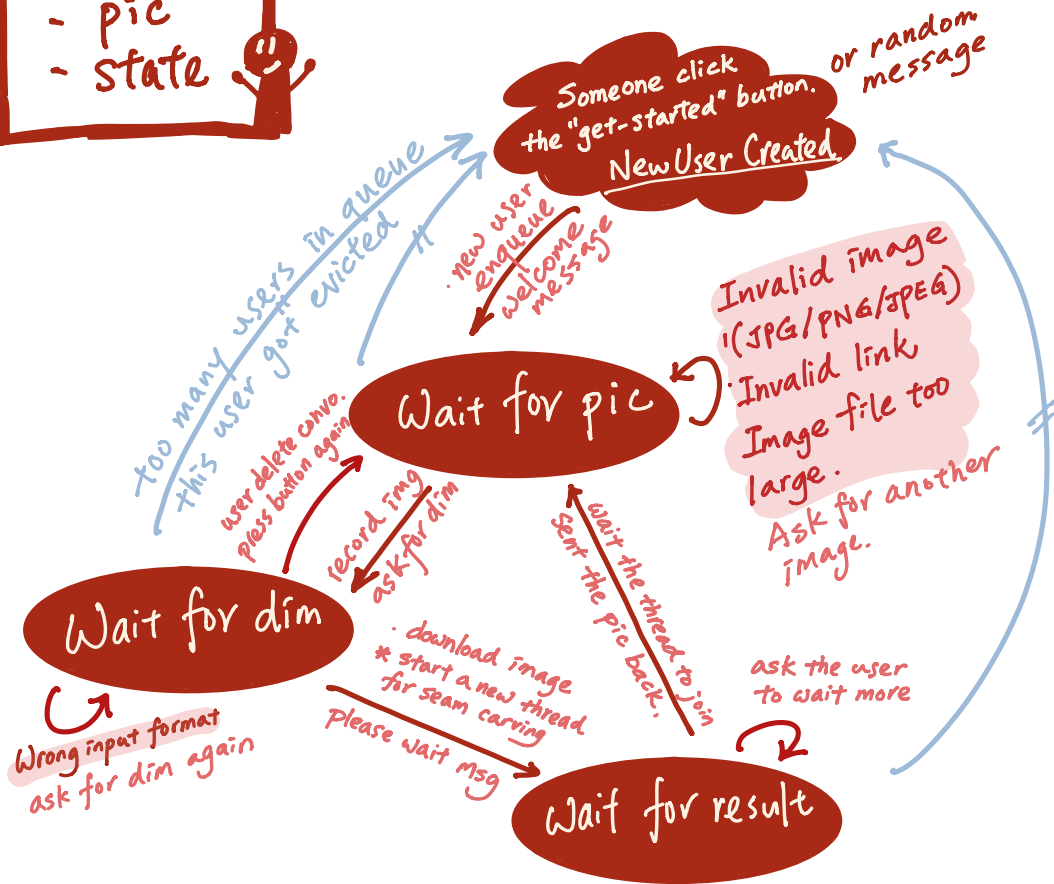 - pic
- state
Someone click
the "get-started" button.
New User Created
or random
message
too many users in queue
this user got evicted
"
· new user
enqueue
welcome
message
Wait for pic
Invalid image
(JPG/PNG/JPEG)
· Invalid link
Image file too
large.
Ask for another
image.
user delete convo.
press button again
record img
ask for dim
wait the thread to join
sent the pic back.
Wait for dim
Wrong input format
ask for dim again
· download image
* start a new thread
for seam carving
please wait msg
ask the user
to wait more
Wait for result